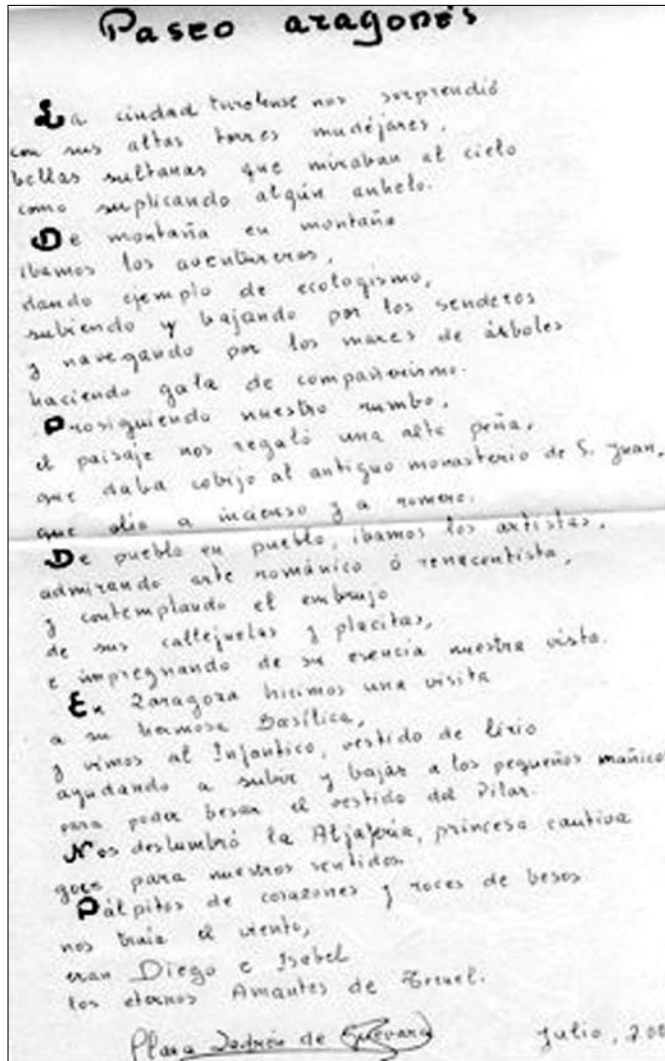 Paseo aragonés
La ciudad turolense nos sorprendió
con sus altas torres mudéjares,
bellas sultanas que miraban al cielo
como suplicando algún anhelo.
De montaña en montaña
íbamos los aventureros,
dando ejemplo de ecologismo,
subiendo y bajando por los senderos
y navegando por los mares de árboles
haciendo gala de compañerismo.
Prosiguiendo nuestro rumbo,
el paisaje nos regaló una alta peña,
que daba cobijo al antiguo monasterio de S. Juan,
que olía a incienso y a romero.
De pueblo en pueblo, íbamos los artistas,
admirando arte románico ó renacentista,
y contemplando el embrujo
de sus callejuelas y placitas,
e impregnando de su esencia nuestra vista.
En Zaragoza hicimos una visita
a su hermosa Basílica,
y vimos al Infantico, vestido de lirio
ayudando a subir y bajar a los pequeños mañicos
para poder besar el vestido del Pilar.
Nos deslumbró la Aljafería, princesa cautiva
goce para nuestros sentidos.
Pálpitos de corazones y roces de besos
nos traía el viento,
eran Diego e Isabel
los eternos Amantes de Teruel.
Ladrón de Guevara
Julio, 200